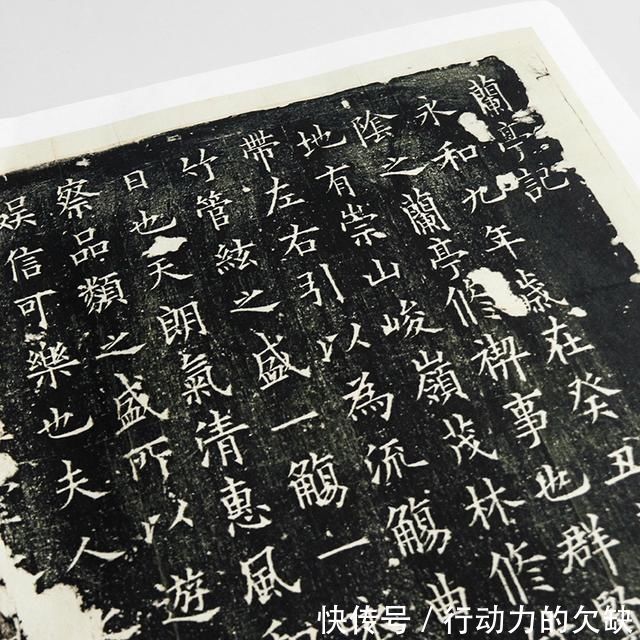 蘭亭記
永和九年歲在癸丑
陰之蘭亭修禊事也群
地有崇山峻嶺茂林修
帶左右引以為流觴曲
竹管絃之盛一觴一
日也天朗氣清惠風和
察品類之盛所以遊
娛信可樂也夫人
快传号 / 行动力的欠缺